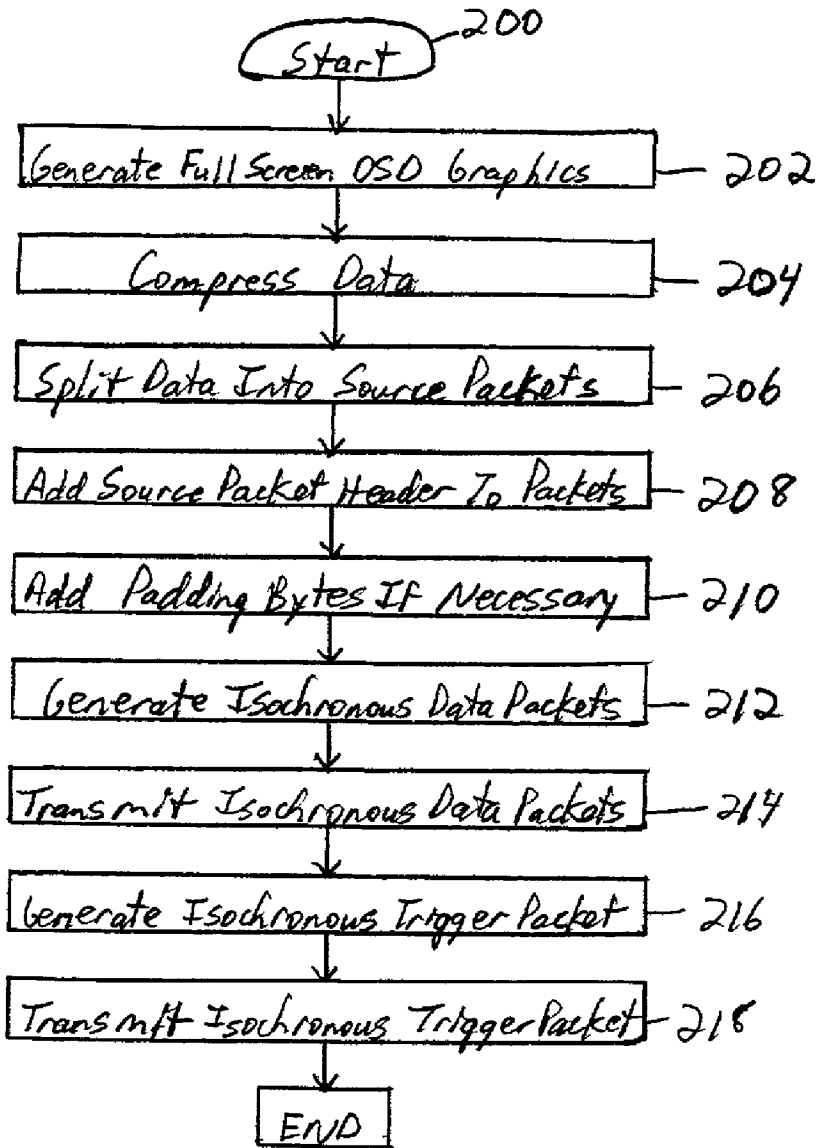 Start 200
Generate Full Screen OSD Graphics 202
Compress Data 204
Split Data Into Source Packets 206
Add Source Packet Header To Packets 208
Add Padding Bytes If Necessary 210
Generate Isochronous Data Packets 212
Transmit Isochronous Data Packets 214
Generate Isochronous Trigger Packet 216
Transmit Isochronous Trigger Packet 218
END